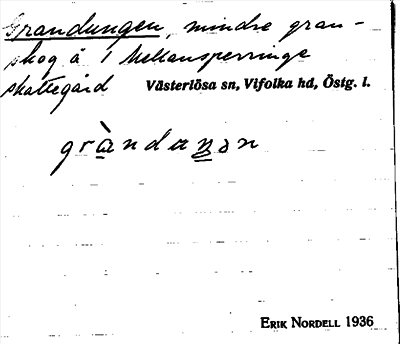 Grandungen, mindre gran-
skog å 1 Mellansperringe
skattegård Västerlösa sn, Vifolka hd, Östg. l.
gràndaŋən
ERIK NORDELL 1936